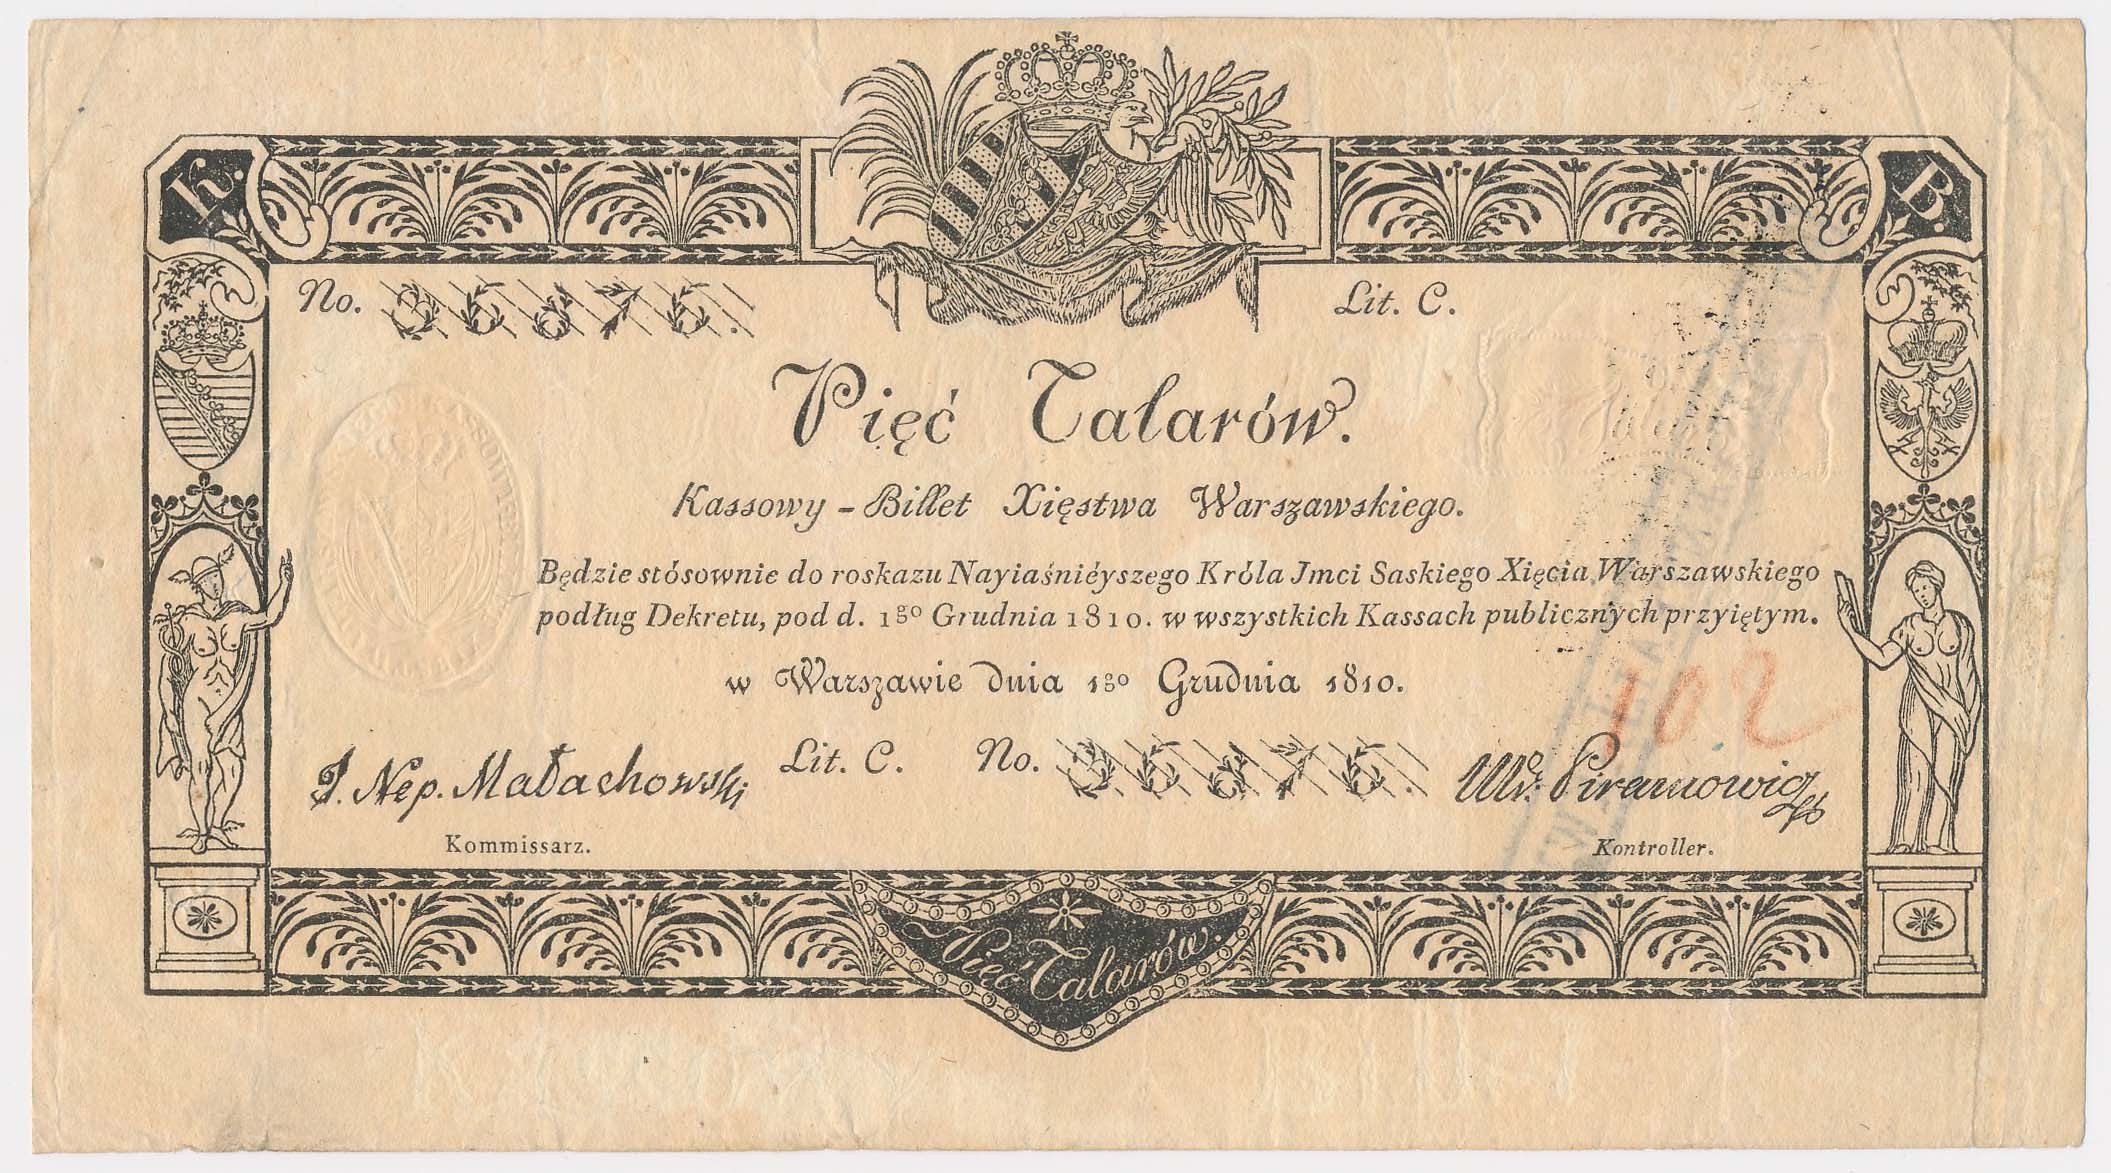 K. B.
No. 36876. Lit. C.
Pięć Talarów.
Kassowy - Billet Xięstwa Warszawskiego.
Będzie stósownie do roskazu Nayiaśniéyszego Króla Jmci Saskiego Xięcia Warszawskiego
podług Dekretu, pod d. 1go Grudnia 1810. w wszystkich Kassach publicznych przyiętym.
w Warszawie dnia 1go Grudnia 1810.
102
J. Nep. Małachowski Lit. C. No. 36876.
Kommissarz. Kontroller.
Pięć Talarów.